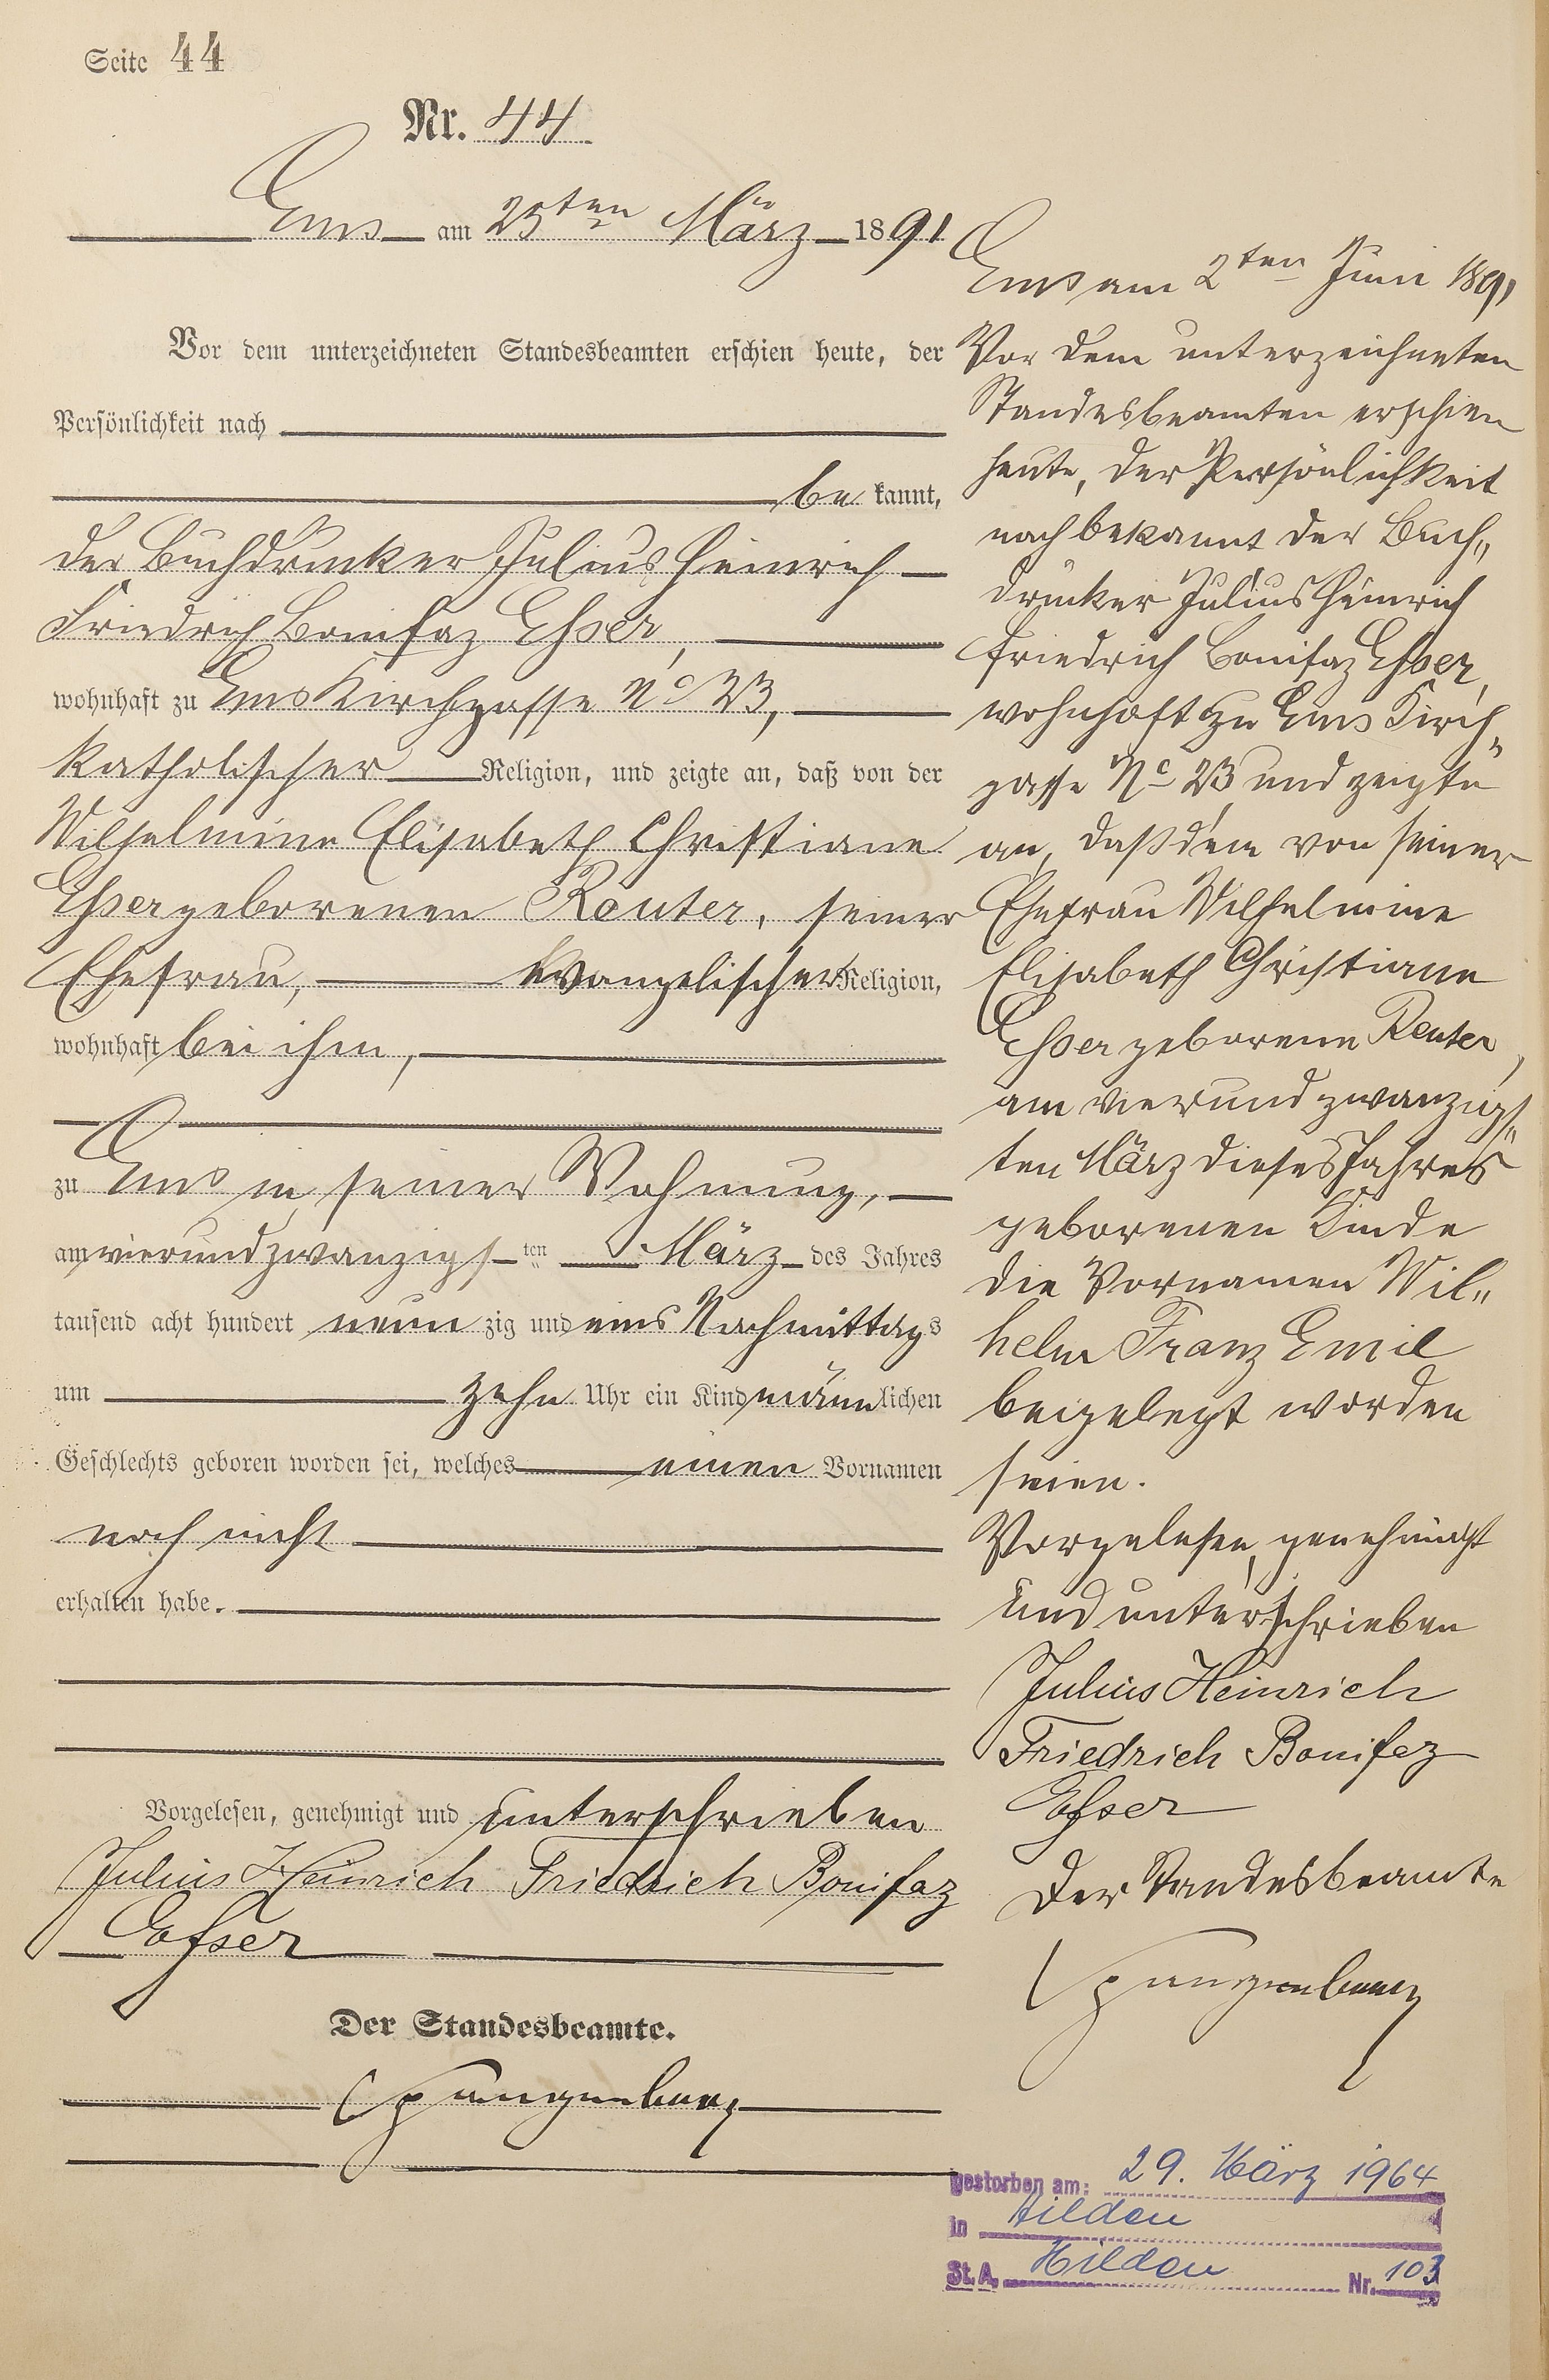 Seite 44
Nr. 44
Ems am 25ten März 1891
Vor dem unterzeichneten Standesbeamten erschien heute, der
Persönlichkeit nach
be kannt,
der Buchdrucker Julius Heinrich
Friedrich Bonifaz Esser,
wohnhaft zu Ems Kirchgasse No 23,
katholischer Religion, und zeigte an, daß von der
Wilhelmine Elisabeth Christiane
Esser geborenen Reuter, seiner
Ehefrau, evangelischer Religion,
wohnhaft bei ihm,
zu Ems in seiner Wohnung,
am vierundzwanzigs ten März des Jahres
tausend acht hundert neun zig und eins Nachmittags
um zehn Uhr ein Kind männlichen
Geschlechts geboren worden sei, welches einen Vornamen
noch nicht
erhalten habe.
Vorgelesen, genehmigt und unterschrieben
Julius Heinrich Friedrich Bonifaz
Esser
Der Standesbeamte.
Spangenberg
Ems am 2ten Juni 1891
Vor dem unterzeichneten
Standesbeamten erschien
heute, der Persönlichkeit
nach bekannt der Buch„
drucker Julius Heinrich
Friedrich Bonifaz Esser,
wohnhaft zu Ems Kirch„
gasse No 23 und zeigte
an, daß dem von seiner
Ehefrau Wilhelmine
Elisabeth Christiane
Esser geborene Reuter,
am vierundzwanzigs„
ten März dieses Jahres
geborenen Kinde
die Vornamen Wil„
helm Franz Emil
beigelegt worden
seien.
Vorgelesen, genehmigt
und unterschrieben
Julius Heinrich
Friedrich Bonifaz
Esser
Der Standesbeamte
Spangenberg
gestorben am: 29. März 1964
in Hilden
St. A. Hilden Nr. 103